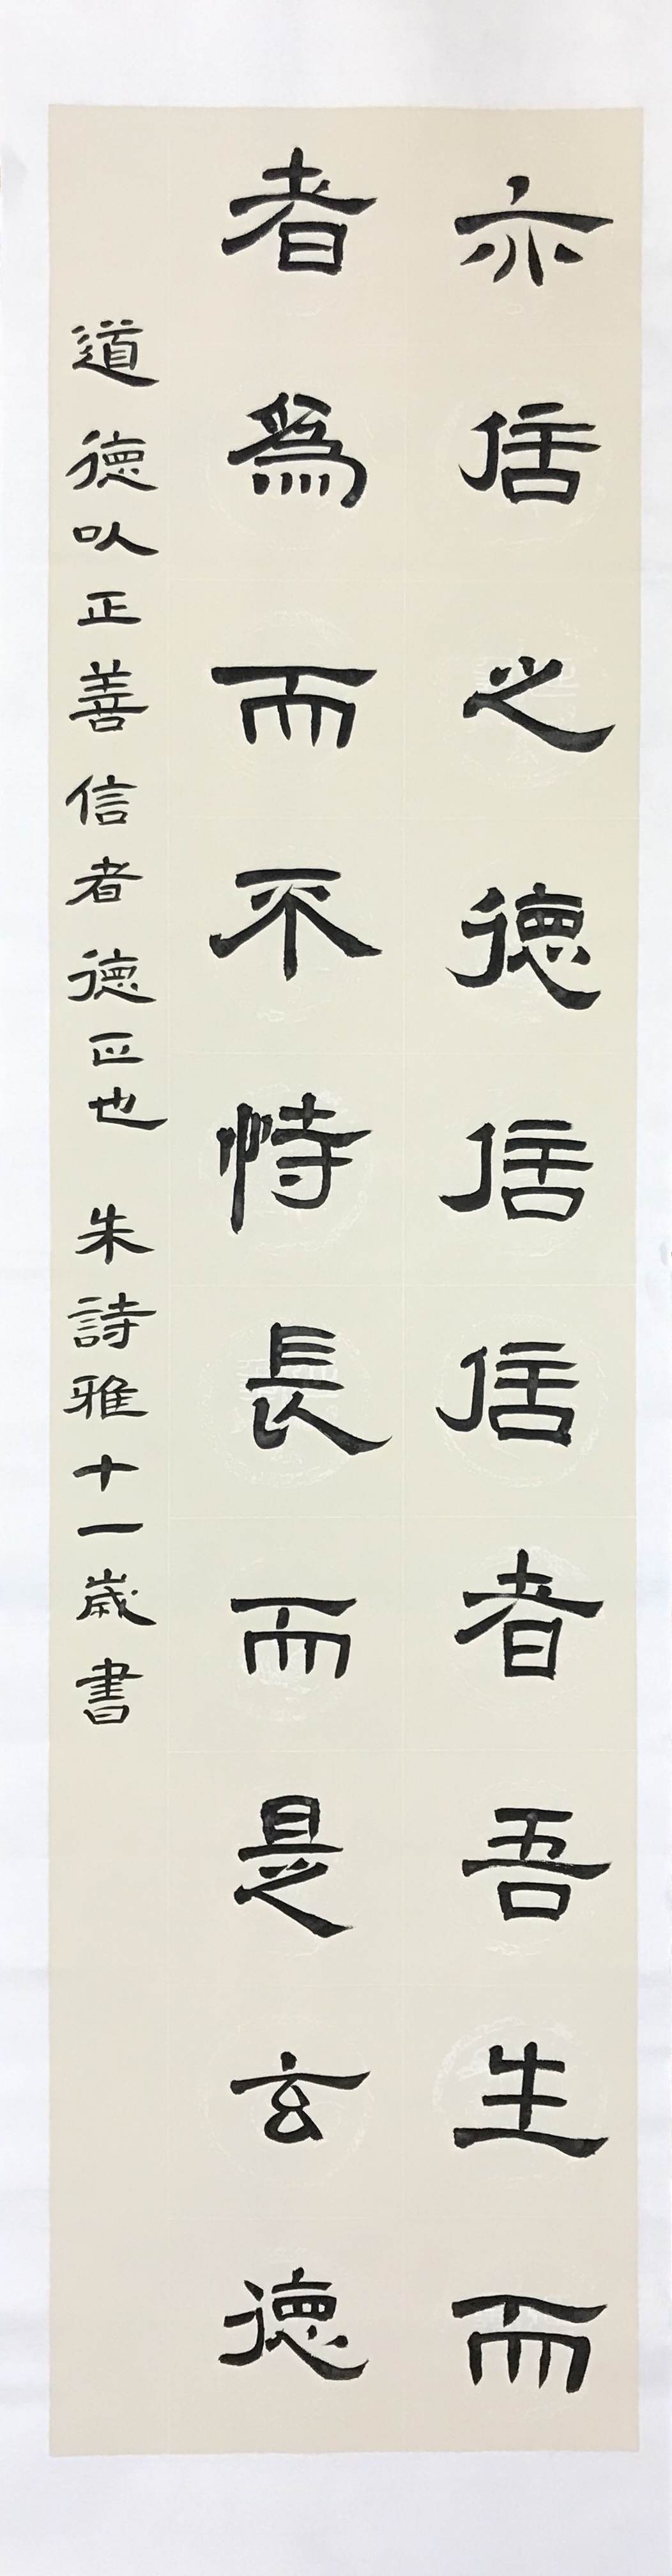 亦信之德信信者吾生而
者為而不恃長而是玄德
道德以正善信者德正也 朱詩雅十一歲書